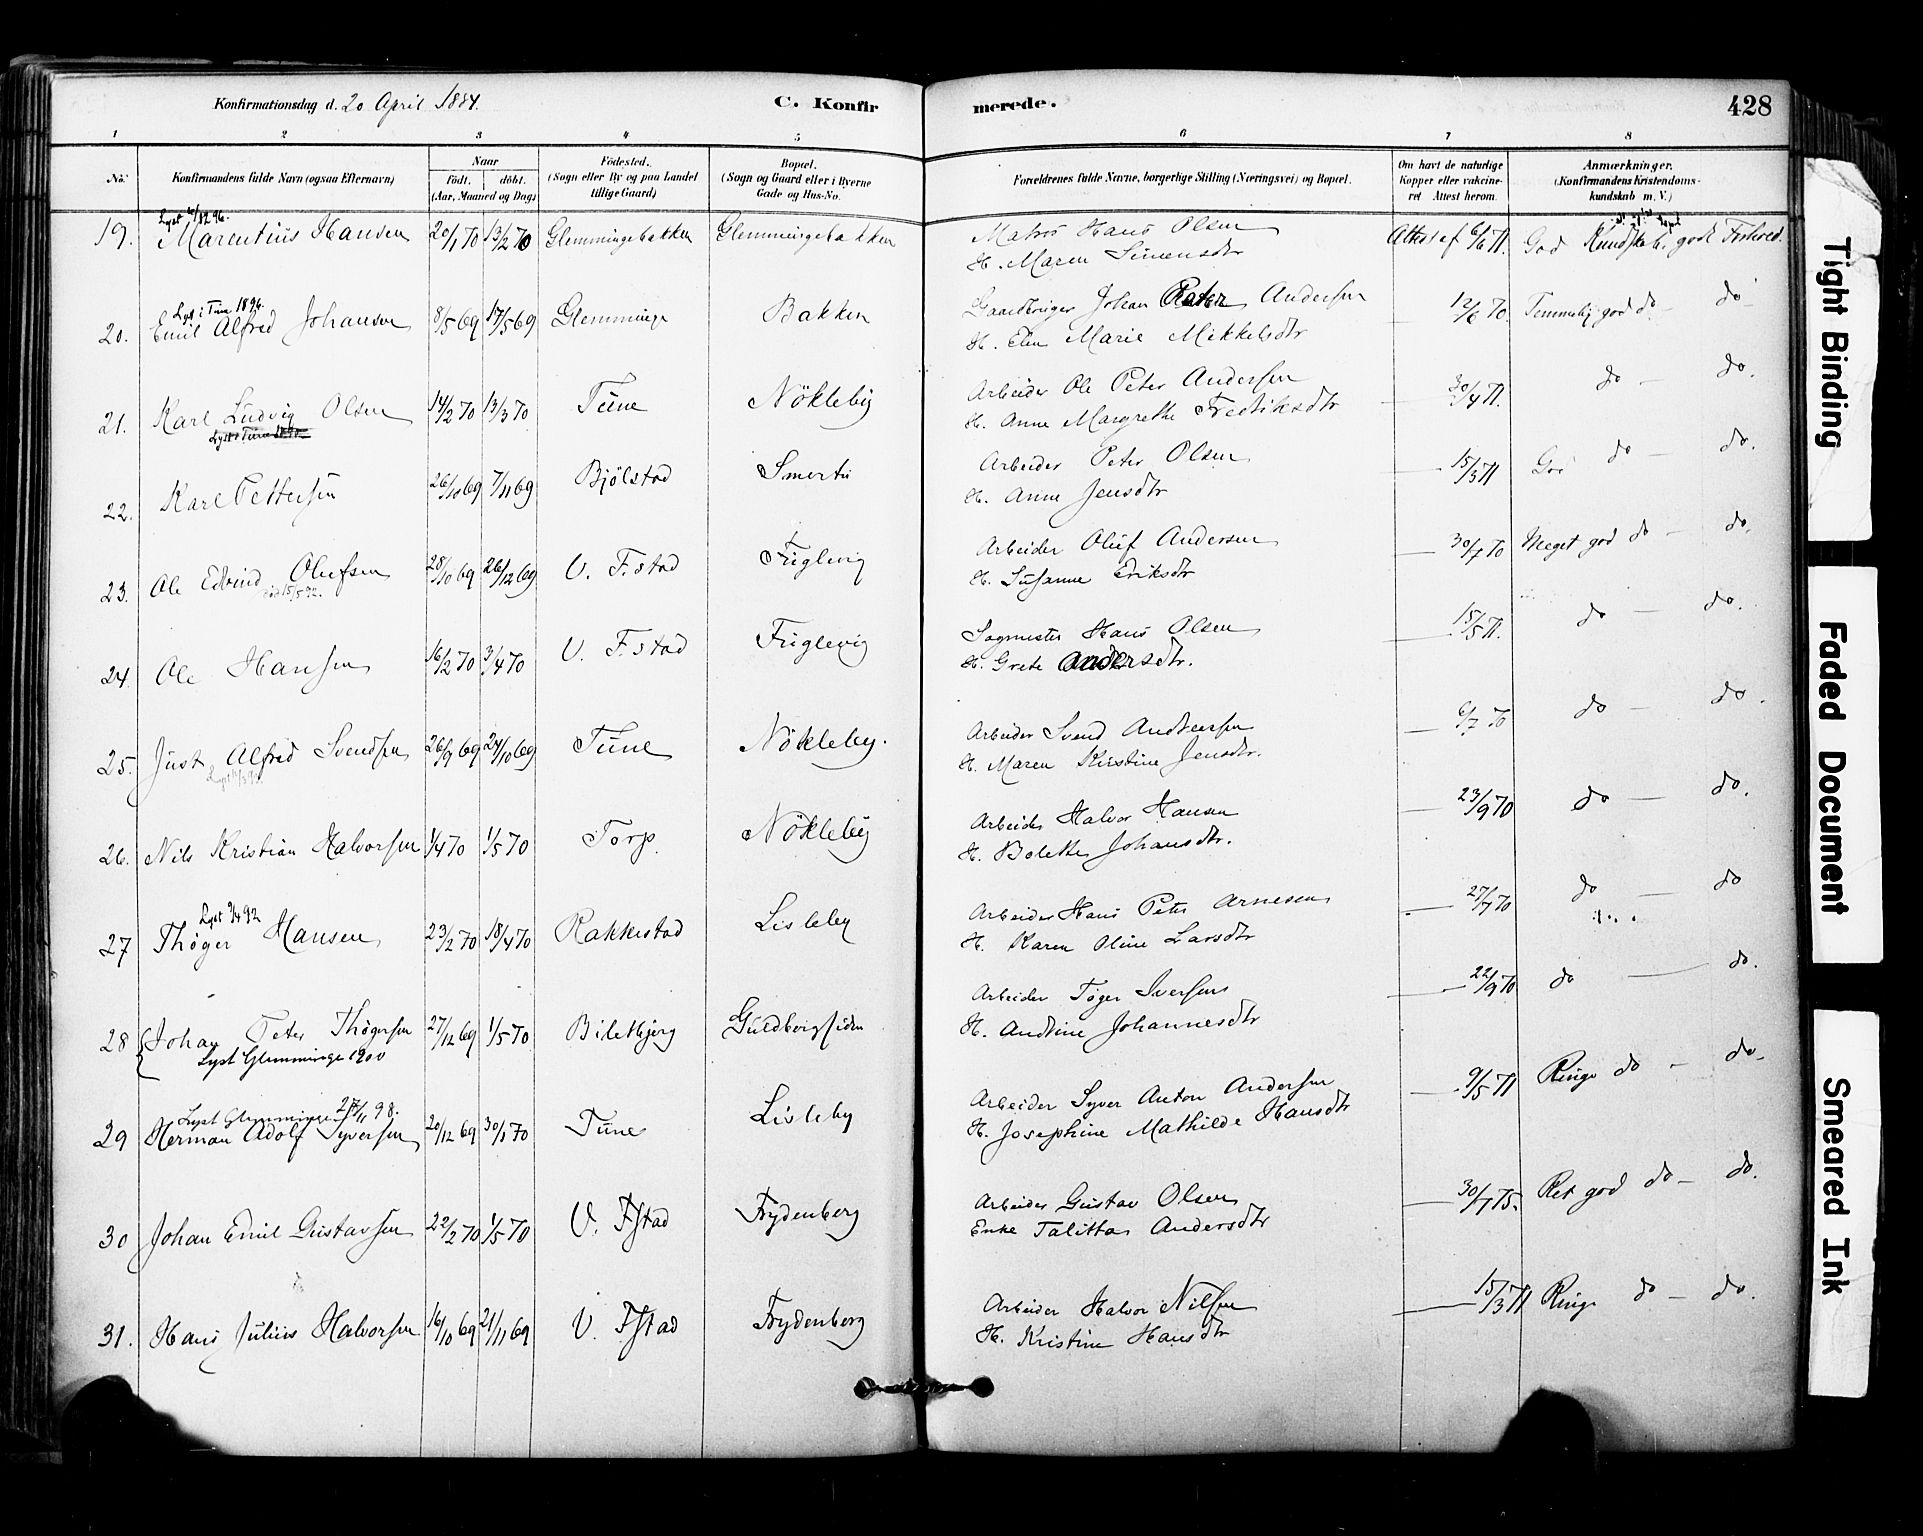 Konfirmationsdag d. 20 April 1884.
C. Konfirmerede.
428
1 2 3 4 5 6 7 8
No.
Konfirmandens fulde Navn (ogsaa Efternavn)
Naar
födt. döbt.
(Aar, Maaned og Dag)
Födested.
(Sogn eller By og paa Landet
tillige Gaard)
Bopæl.
(Sogn og Gaard eller i Byerne
Gade og Hus-No.
Forældrenes fulde Navne, borgerlige Stilling (Næringsvei) og Bopæl.
Om havt de naturlige
Kopper eller vakcine-
ret Attest herom.
Anmærkninger.
(Konfirmandens Kristendoms-
kundskab m. V.)
19. Marentius Hansen 20/1 70 13/2 70 Glemmingebakken Glemmingebakken Matros Hans Olsen Attest af 6/6 71. God Kundskab, godt Forhold.
H. Maren Simensdtr
Lyst i Tune 1896.
20. Emil Alfred Johansen 8/5 69 17/5 69 Glemminge Bakken Gaardbruger Johan Peter Andersen — 12/6 70. Temmelig god do — do
H. Elen Marie Mikkelsdtr
21. Karl Ludvig Olsen 14/2 70 13/3 70 Tune Nökleby Arbeider Ole Peter Andersen — 30/4 71. do — do.
H. Anne Margrethe Fredriksdtr
22. Karl Pettersen 26/10 69 7/11 69 Bjölstad Smertu Arbeider Peter Olsen — 15/3 71 God do — do.
H. Anne Jensdtr
23. Ole Edvind Olufsen 28/10 69 26/12 69 V. F.stad Fuglevig Arbeider Oluf Andersen — 30/7 70 Meget god do — do.
H. Susanne Eriksdtr
24. Ole Hansen 16/2 70 3/4 70 V. F.stad Fuglevig Sagmester Hans Olsen — 15/5 71. do — do.
H. Grete Andersdtr.
25. Just Alfred Svendsen 26/9 69 24/10 69 Tune Nökleby. Arbeider Svend Andreersen — 6/7 70 do — do.
H. Maren Kirstine Jensdtr.
26. Nils Kristian Halvorsen 1/4 70 1/5 70 Torp. Nökleby Arbeider Halvor Hansen — 23/9 70 do — do.
H. Bolette Johansdtr.
Lyst 3/4 92
27 Thöger Hansen 23/2 70 18/4 70 Rakkestad Lisleby Arbeider Hans Peter Arnesen — 27/7 70 do — do
H. Karen Oline Larsdtr
28 Johan Peter Thögersen 27/12 69 1/5 70 Biletbjerg Guldbergsiden Arbeider Töger Iversen — 22/9 70 do — do.
Lyst Glemminge 1900 H. Andrine Johannesdtr
Lyst Glemminge 27/11 98.
29 Herman Adolf Syversen 20/12 69 30/1 70 Tune Lisleby Arbeider Syver Anton Andersen — 9/5 71 Ringe do — do.
H. Josephine Mathilde Hansdtr
30 Johan Emil Gustavsen 22/2 70 1/5 70 V. Fstad Frydenberg Arbeider Gustav Olsen — 30/7 75. Ret god do — do.
Enke Talitta Andersdtr
31. Hans Julius Halvorsen 16/10 69 21/11 69 V. Fstad Frydenberg Arbeider Halvor Nilsen — 15/3 71 Ringe do — do.
H. Kristine Hansdtr
Tight Binding
Faded Document
Smeared Ink